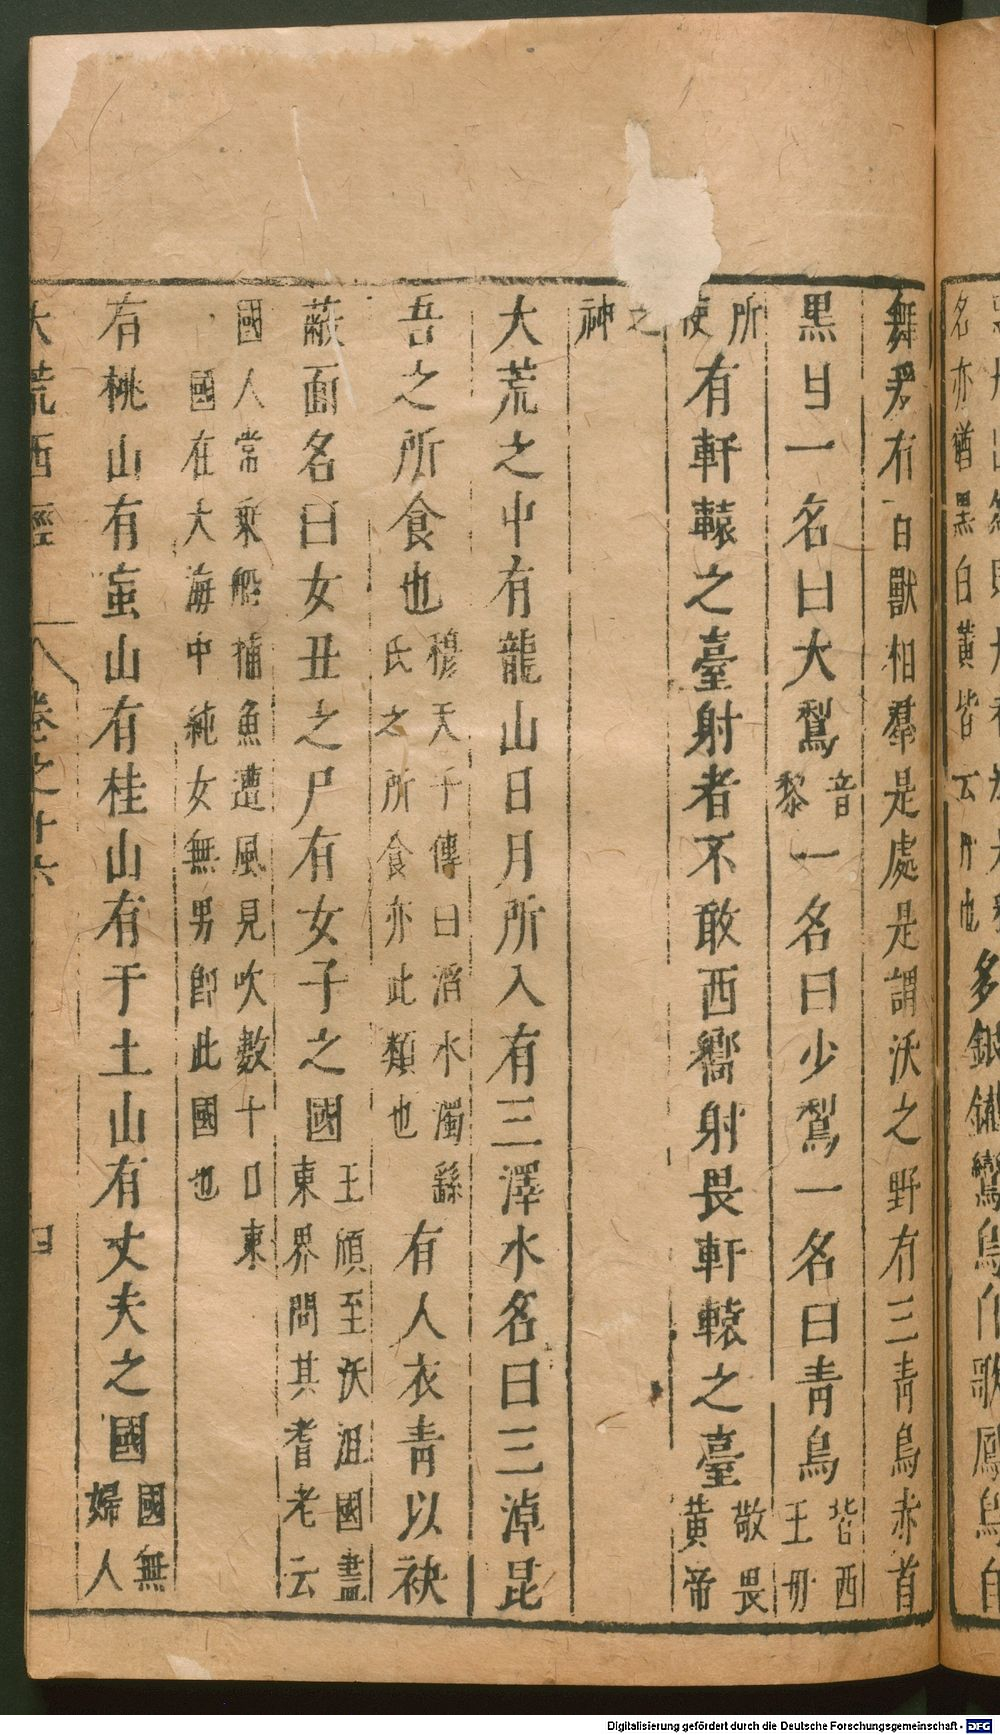 名亦猶黑白黃皆云丹也多銀鐵鸞鳥自歌鳳鳥自
舞爰有百獸相羣是處是謂沃之野有三青鳥赤首
黑目一名曰大鵹音黎一名曰少鵹一名曰青鳥皆西王母
所使有軒轅之臺射者不敢西嚮射畏軒轅之臺敬畏黃帝
之神
大荒之中有龍山日月所入有三澤水名曰三淖昆
吾之所食也穆天子傳曰滔水濁繇氏之所食亦此類也有人衣青以袂
蔽面名曰女丑之尸有女子之國王頎至沃沮國盡東界問其耆老云
國人常乘船捕魚遭風見吹數十日東
國在大海中純女無男即此國也
有桃山有䖟山有桂山有于土山有丈夫之國國無婦人
大荒西經 卷之十六 四
Digitalisierung gefördert durch die Deutsche Forschungsgemeinschaft - DFG